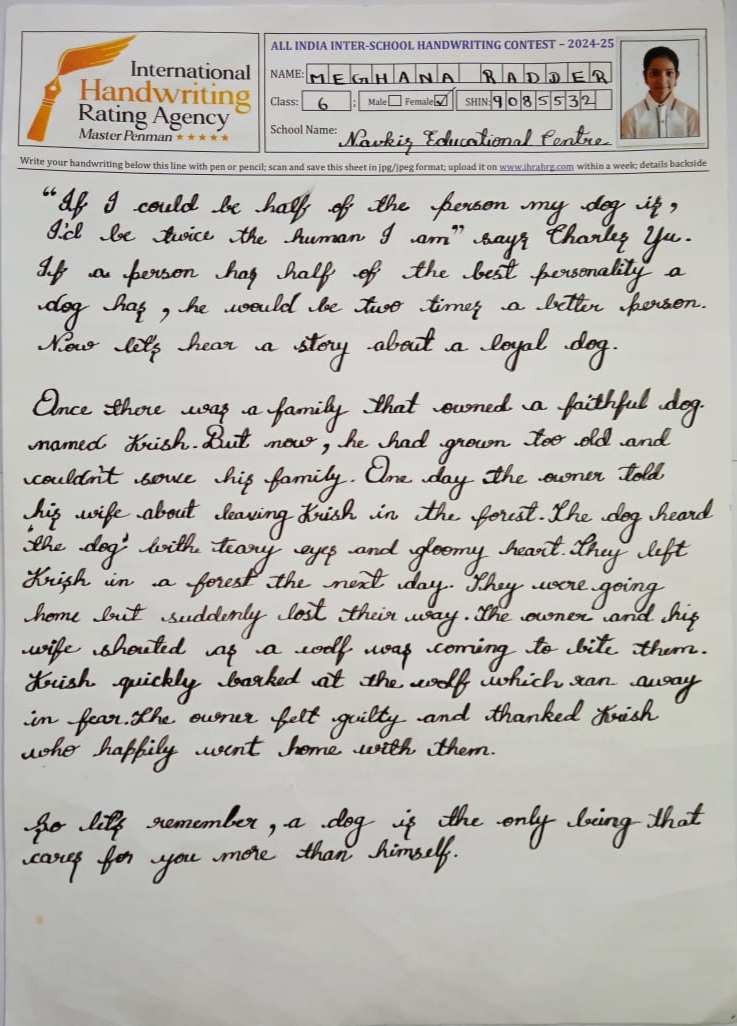 International
Handwriting
Rating Agency
Master Penman ★★★★★
ALL INDIA INTER-SCHOOL HANDWRITING CONTEST – 2024-25
NAME: MEGHANA RADDER
Class: 6 ; Male☐ Female☑ SHIN: 9085532
School Name: Navkis Educational Centre
Write your handwriting below this line with pen or pencil; scan and save this sheet in jpg/jpeg format; upload it on www.ihrahrg.com within a week; details backside
“If I could be half of the person my dog is,
I'd be twice the human I am” says Charles Yu.
If a person has half of the best personality a
dog has, he would be two times a better person.
Now let's hear a story about a loyal dog.
Once there was a family that owned a faithful dog.
named Krish. But now, he had grown too old and
couldn't serve his family. One day the owner told
his wife about leaving Krish in the forest. The dog heard
'the dog' with teary eyes and gloomy heart. They left
Krish in a forest the next day. They were going
home but suddenly lost their way. The owner and his
wife shouted as a wolf was coming to bite them.
Krish quickly barked at the wolf which ran away
in fear. The owner felt guilty and thanked Krish
who happily went home with them.
So let's remember, a dog is the only being that
cares for you more than himself.